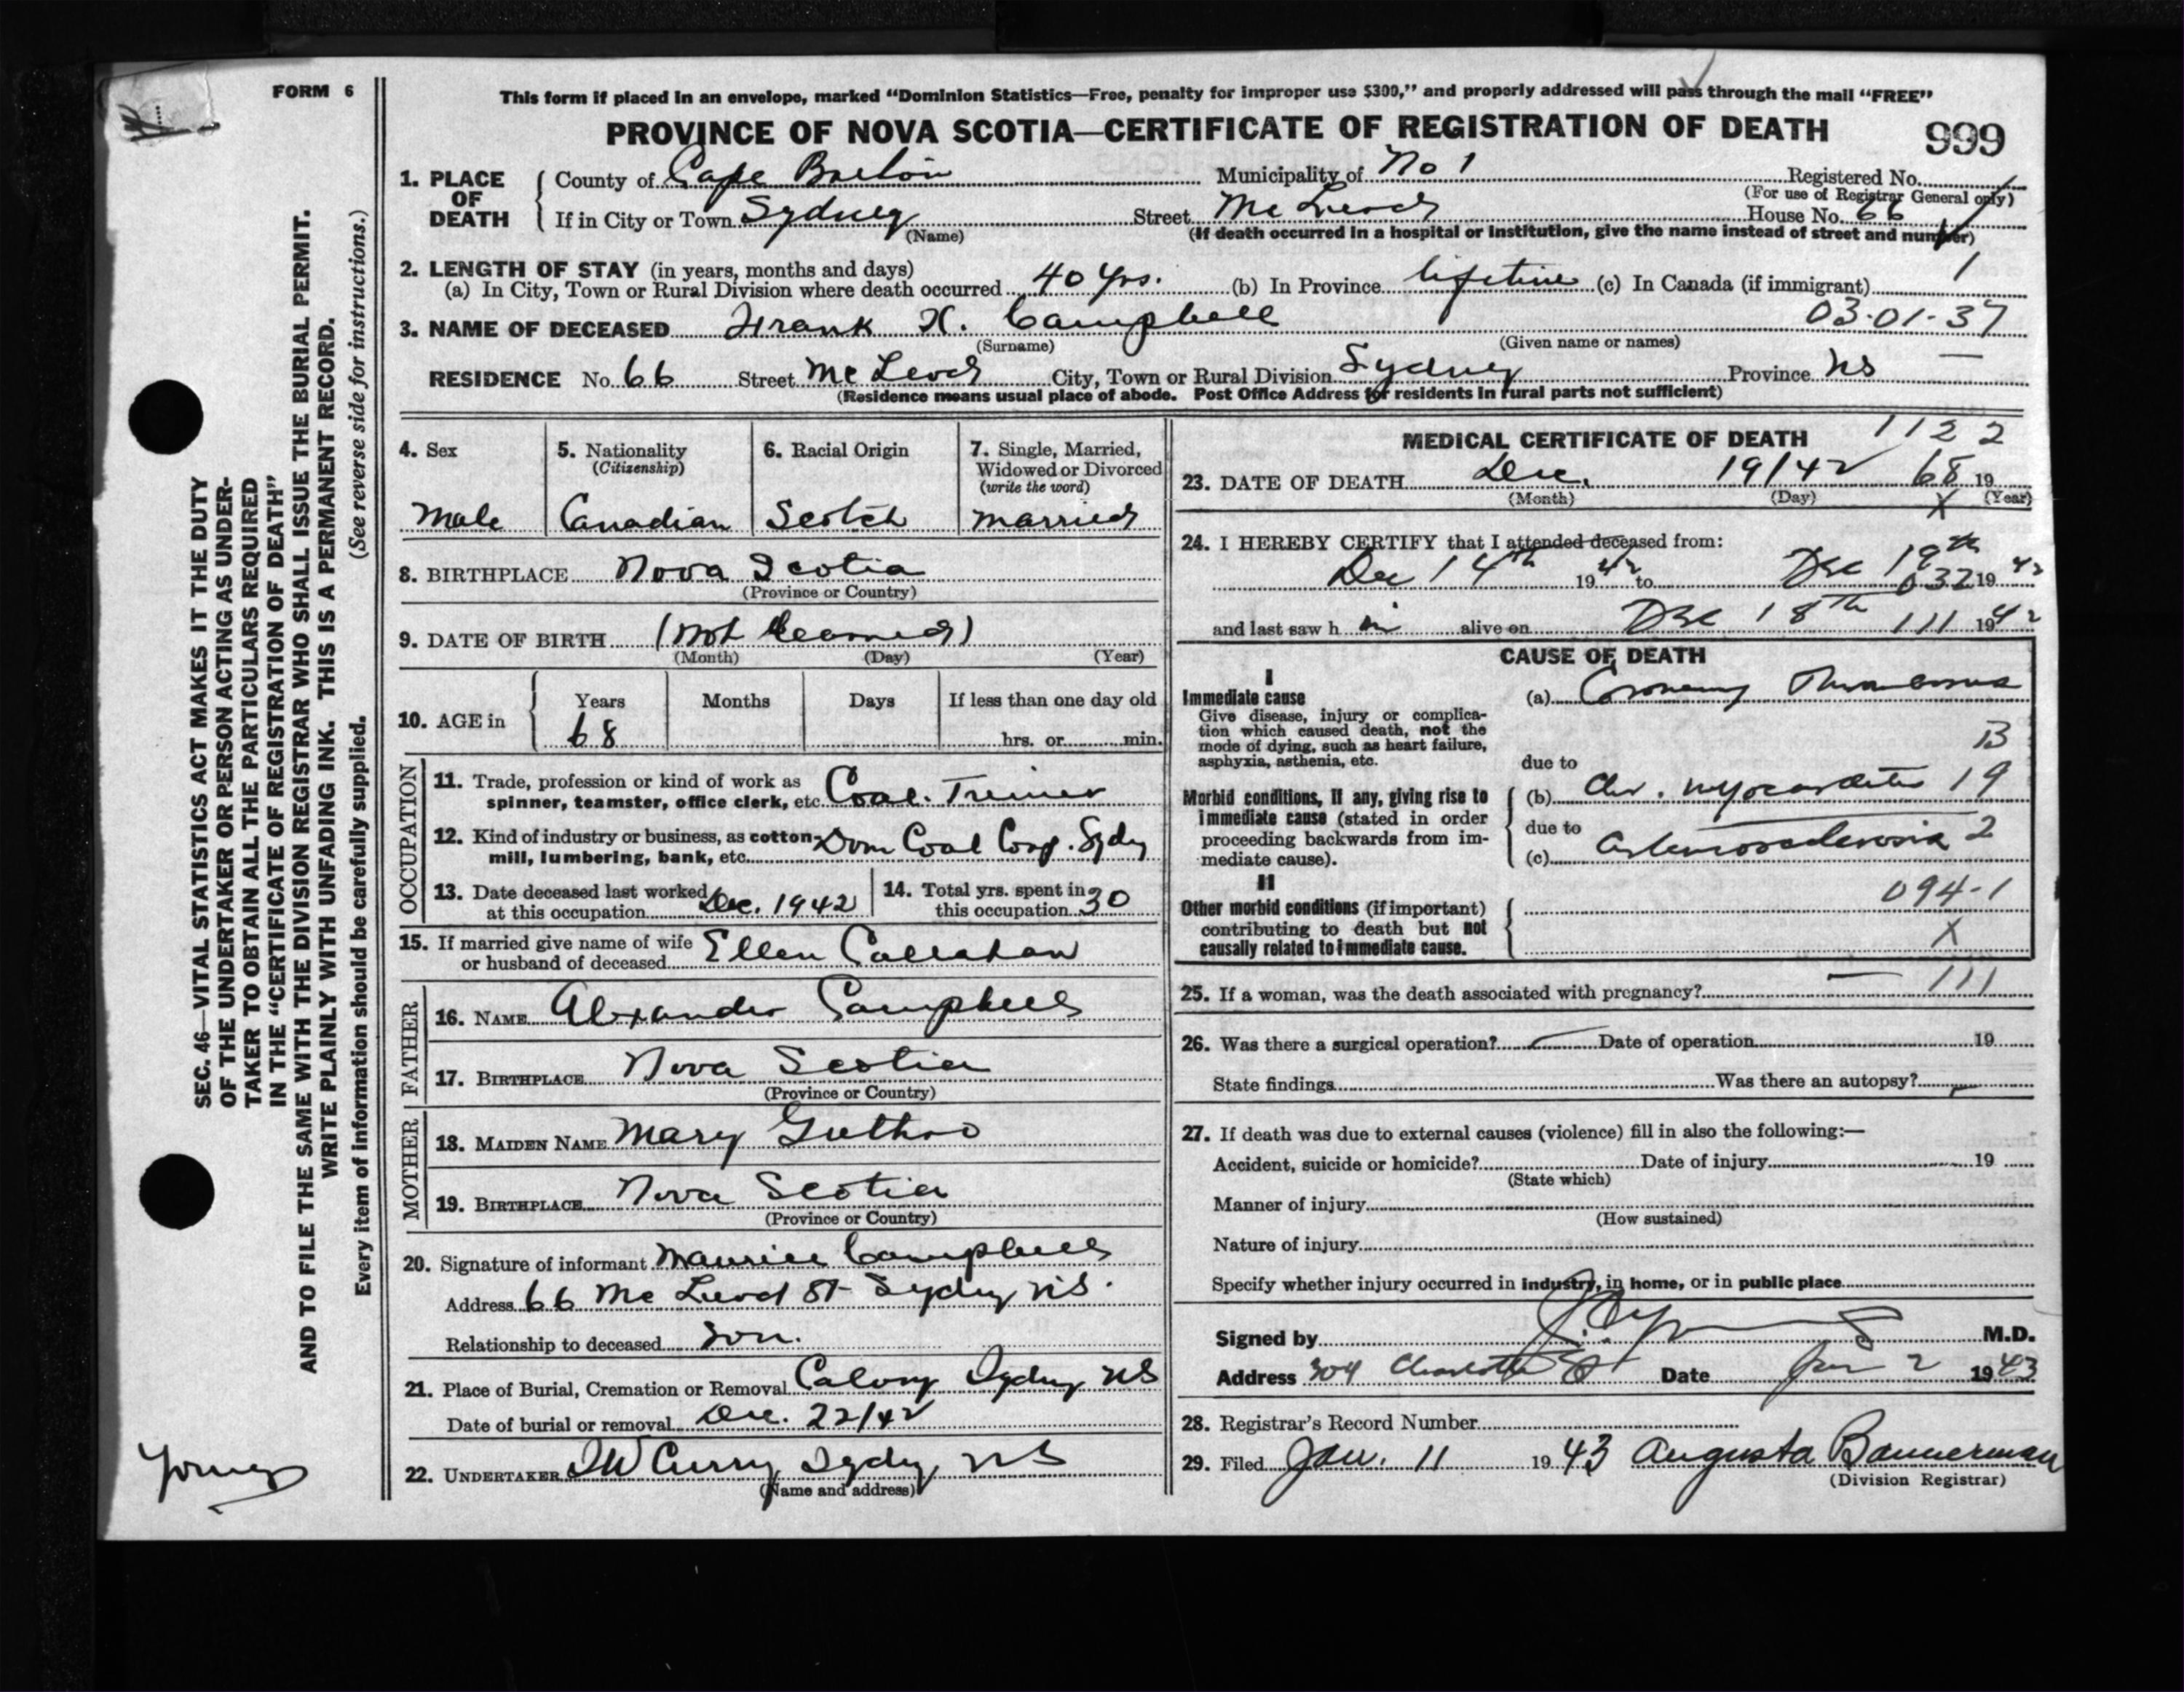 FORM 6
This form if placed in an envelope, marked “Dominion Statistics—Free, penalty for improper use $300,” and properly addressed will pass through the mail “FREE”
PROVINCE OF NOVA SCOTIA—CERTIFICATE OF REGISTRATION OF DEATH 999
1. PLACE OF DEATH County of Cape Breton Municipality of No 1 Registered No.
(For use of Registrar General only)
If in City or Town Sydney Street McLeod House No. 66
(Name) (If death occurred in a hospital or institution, give the name instead of street and number)
2. LENGTH OF STAY (in years, months and days) 1
(a) In City, Town or Rural Division where death occurred 40 yrs. (b) In Province lifetime (c) In Canada (if immigrant)
3. NAME OF DECEASED Frank X. Campbell 03-01-37
(Surname) (Given name or names)
RESIDENCE No. 66 Street McLeod City, Town or Rural Division Sydney Province NS
(Residence means usual place of abode. Post Office Address for residents in rural parts not sufficient)
4. Sex 5. Nationality 6. Racial Origin 7. Single, Married,
(Citizenship) Widowed or Divorced
(write the word)
Male Canadian Scotch married
8. BIRTHPLACE Nova Scotia
(Province or Country)
9. DATE OF BIRTH (Not learned)
(Month) (Day) (Year)
Years Months Days If less than one day old
10. AGE in 68 hrs. or min.
OCCUPATION
11. Trade, profession or kind of work as
spinner, teamster, office clerk, etc. Coal. Trimer
12. Kind of industry or business, as cotton-
mill, lumbering, bank, etc. Dom Coal Corp. Sydy
13. Date deceased last worked
at this occupation Dec. 1942
14. Total yrs. spent in
this occupation 30
15. If married give name of wife
or husband of deceased Ellen Callahan
FATHER
16. NAME Alexander Campbell
17. BIRTHPLACE Nova Scotia
(Province or Country)
MOTHER
18. MAIDEN NAME Mary Guthro
19. BIRTHPLACE Nova Scotia
(Province or Country)
20. Signature of informant Maurice Campbell
Address 66 McLeod St Sydney NS.
Relationship to deceased son.
21. Place of Burial, Cremation or Removal Calvary Sydney NS
Date of burial or removal Dec. 22/42
22. UNDERTAKER Curry Sydy NS
(Name and address)
MEDICAL CERTIFICATE OF DEATH 1122
23. DATE OF DEATH Dec. 19/42 68 19
(Month) (Day) X (Year)
24. I HEREBY CERTIFY that I attended deceased from:
Dec 14th 1942 to Dec 19th 032 1942
and last saw h im alive on Dec 18th 111 1942
CAUSE OF DEATH
I
Immediate cause (a) Coronary Thrombosis
Give disease, injury or complica-
tion which caused death, not the 13
mode of dying, such as heart failure,
asphyxia, asthenia, etc. due to
Morbid conditions, if any, giving rise to (b) Chr. myocarditis 19
immediate cause (stated in order due to
proceeding backwards from im-
mediate cause). (c) Arteriosclerosis 2
II 094-1
Other morbid conditions (if important)
contributing to death but not X
causally related to immediate cause.
25. If a woman, was the death associated with pregnancy? — 111
26. Was there a surgical operation? Date of operation 19
State findings Was there an autopsy?
27. If death was due to external causes (violence) fill in also the following:—
Accident, suicide or homicide? Date of injury 19
(State which)
Manner of injury
(How sustained)
Nature of injury
Specify whether injury occurred in industry, in home, or in public place
Signed by M.D.
Address 304 Charlotte St Date Jan 2 1943
28. Registrar's Record Number
29. Filed Jan. 11 1943 Augusta Bannerman
(Division Registrar)
SEC. 46—VITAL STATISTICS ACT MAKES IT THE DUTY
OF THE UNDERTAKER OR PERSON ACTING AS UNDER-
TAKER TO OBTAIN ALL THE PARTICULARS REQUIRED
IN THE “CERTIFICATE OF REGISTRATION OF DEATH”
AND TO FILE THE SAME WITH THE DIVISION REGISTRAR WHO SHALL ISSUE THE BURIAL PERMIT.
WRITE PLAINLY WITH UNFADING INK. THIS IS A PERMANENT RECORD.
Every item of information should be carefully supplied. (See reverse side for instructions.)
Young